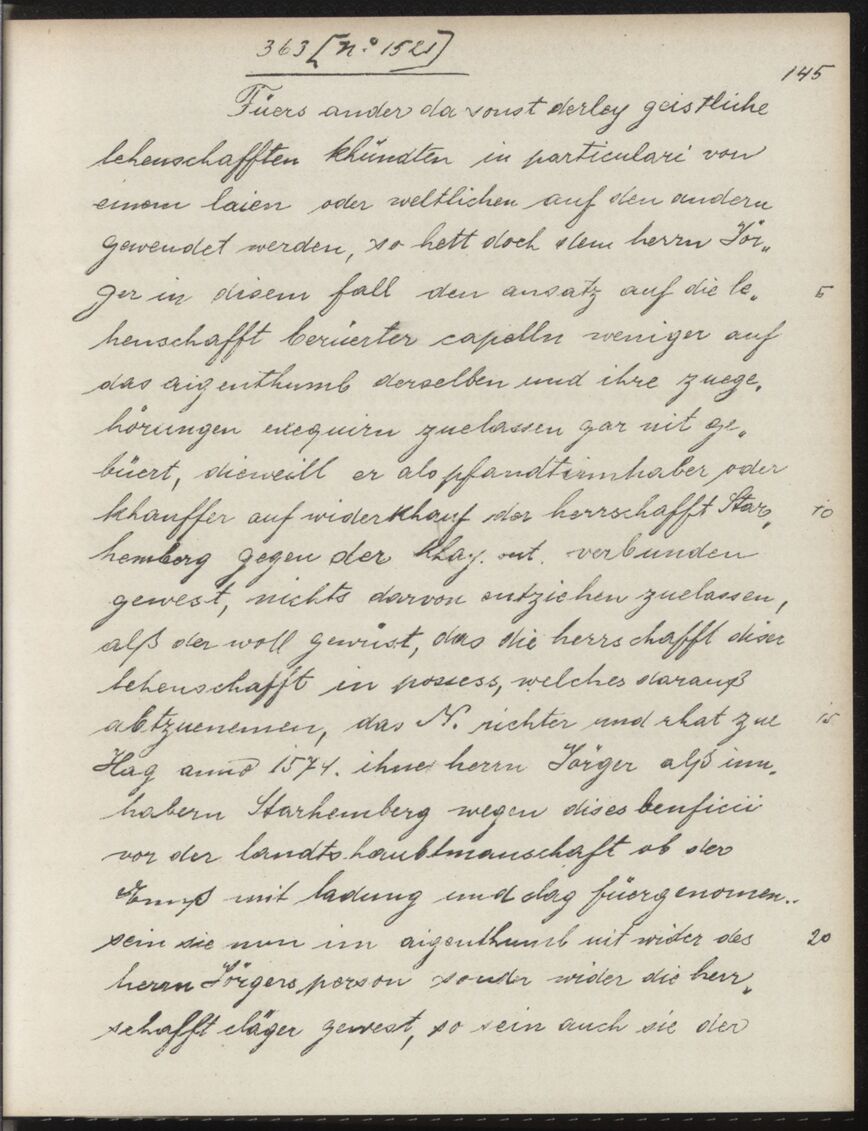 363 [n.° 1521]
145
Füers ander da sonst derley geistliche
lehenschafften khündten in particulari von
einem laien oder weltlichen auf den andern
gewendet werden, so hett doch dem herrn Jör„
ger in disem fall den ansatz auf die le„ 5
henschafft berüerter capelln weniger auf
das aigenthumb derselben und ihre zuege„
hörungen exequirn zuelassen gar nit ge„
büert, dieweill er als pfandtsinnhaber oder
khauffer auf widerkhauf der herrschafft Star„ 10
hemberg gegen der khay. mt. verbunden
gewest, nichts darvon entziehen zuelassen,
alß der woll gewust, das die herrschafft diser
lehenschafft in possess, welches darauß
abtzuenemen, das N. richter und rhat zue 15
Hag anno 1574. ihne herrn Jörger alß inn„
habern Starhemberg wegen dises benficii
vor der landtshaubtmanschaft ob der
Ennß mit ladung und clag füergenomen..
sein sie nun im aigenthumb nit wider des 20
herrn Jörgers person sonder wider die herr„
schafft cläger gewest, so sein auch sie der